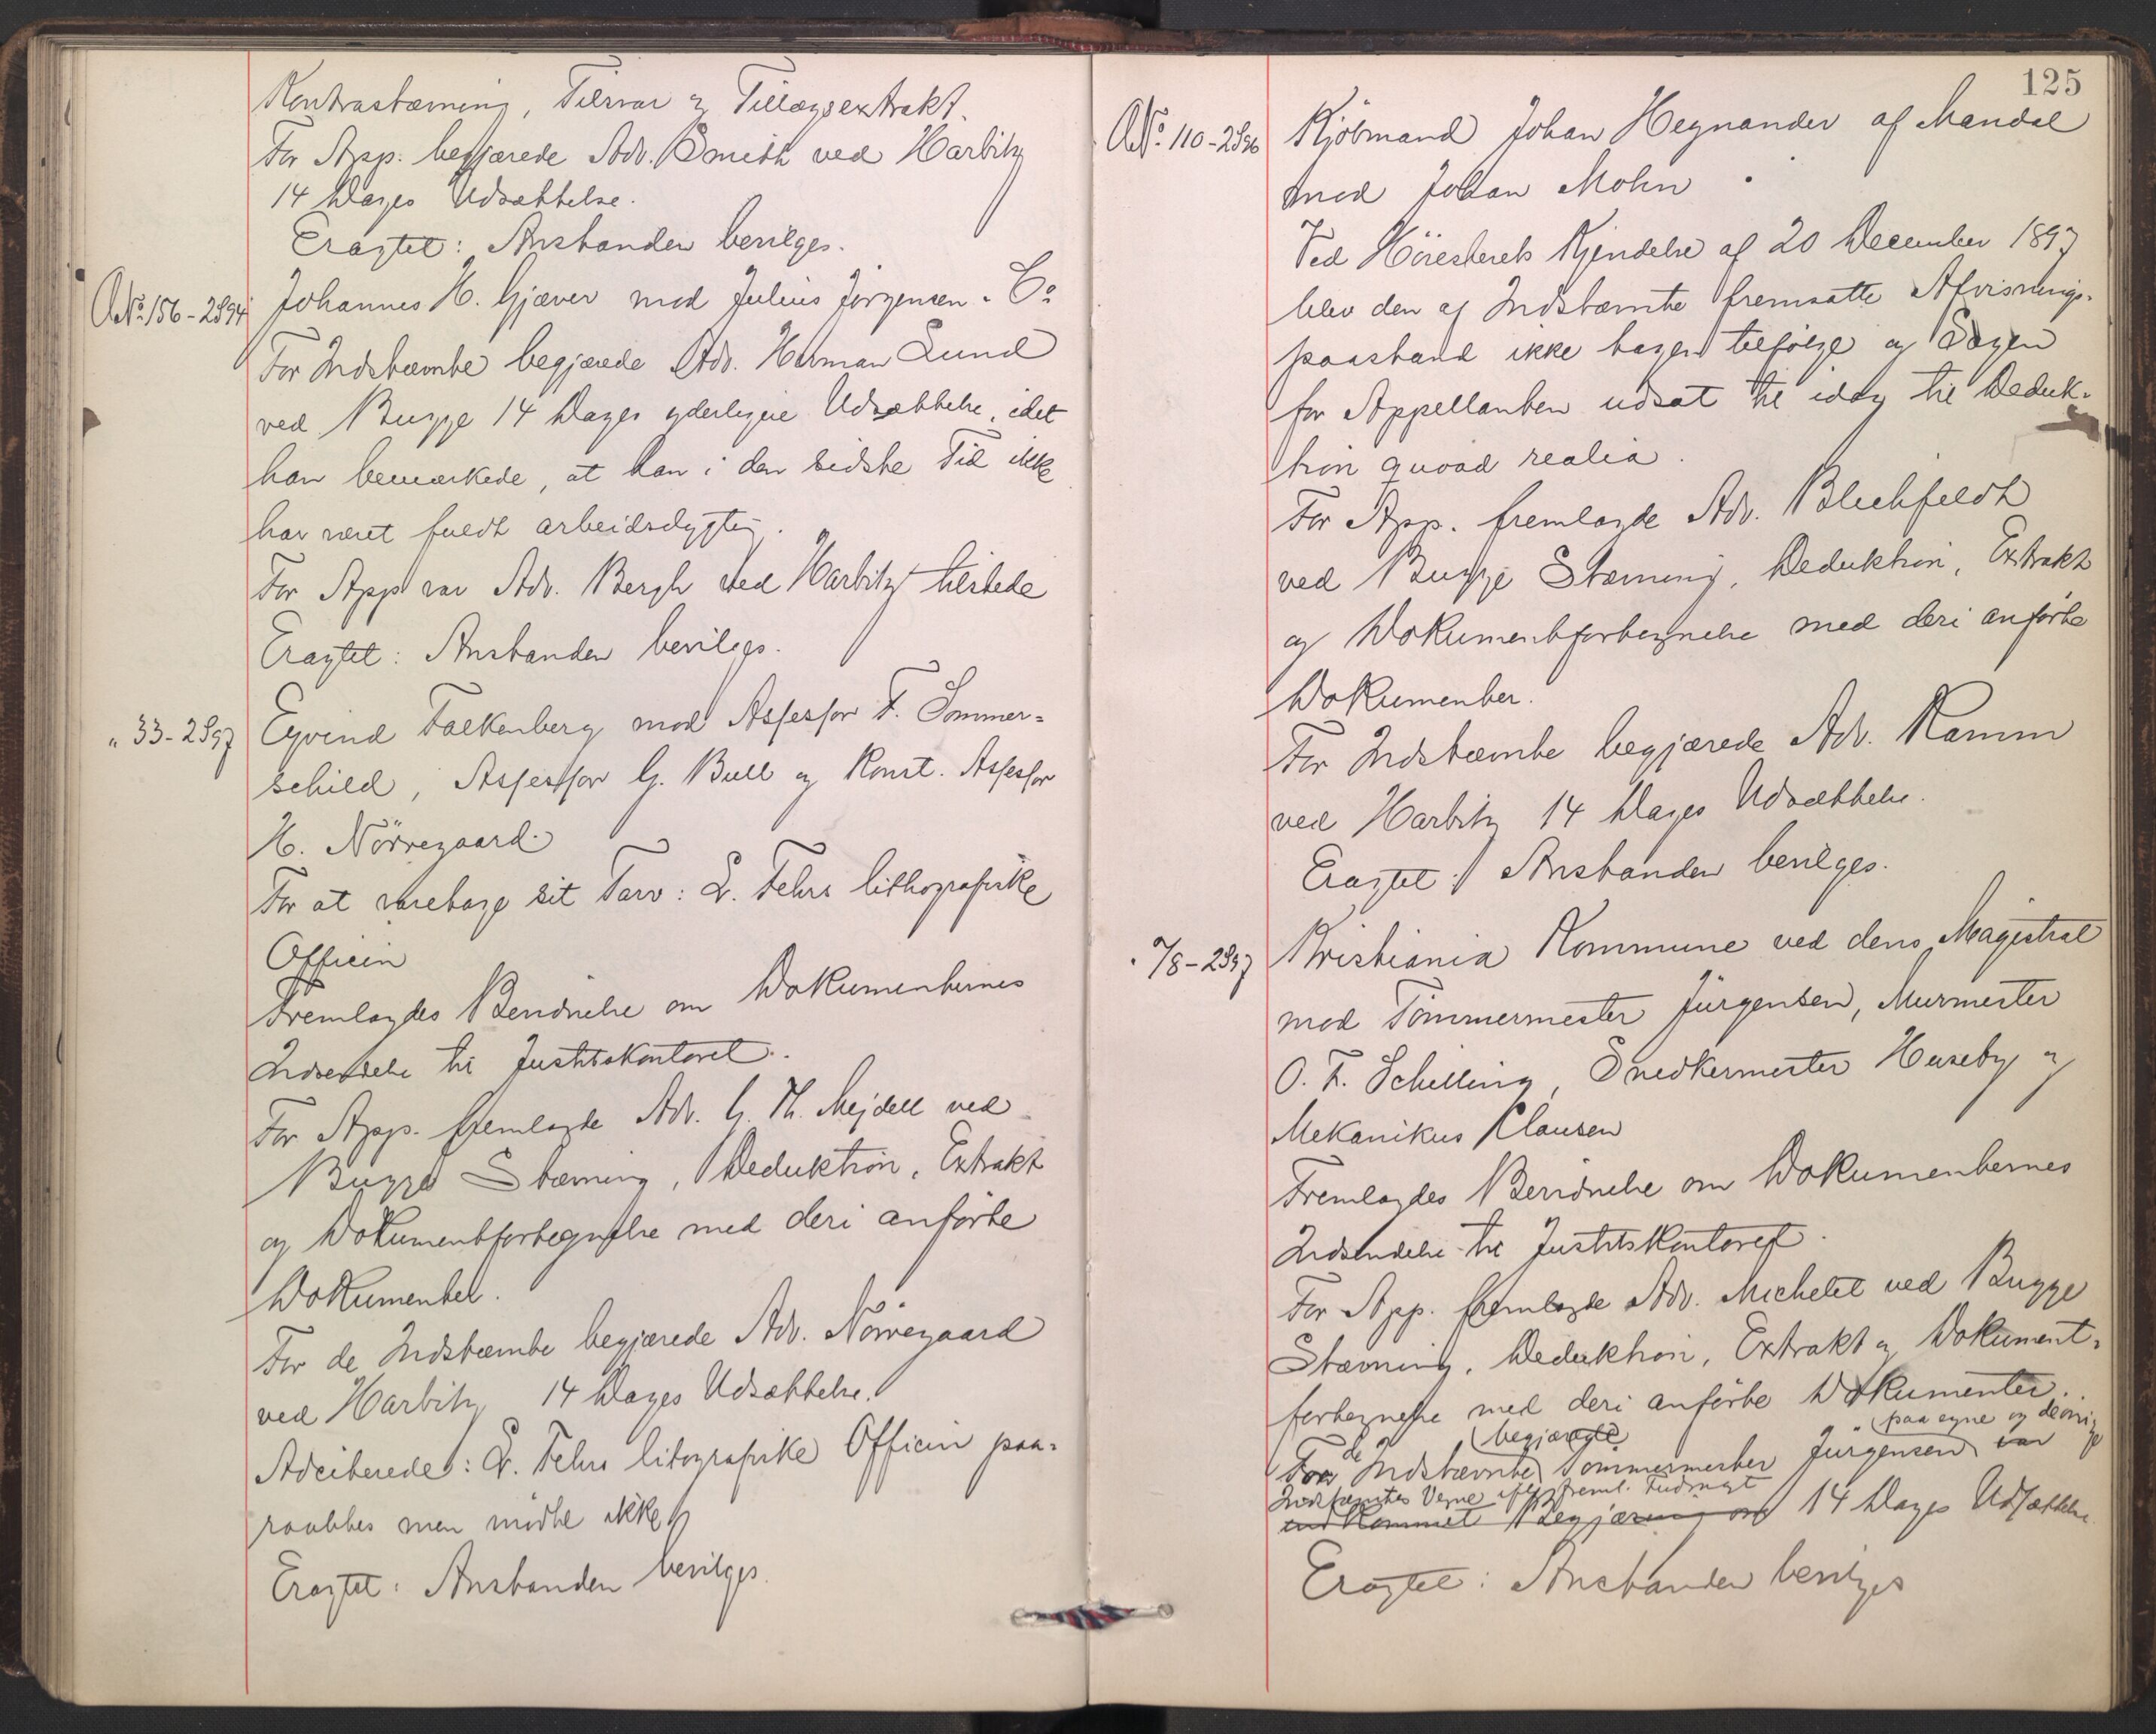 Kontrastævning, Tilsvar og Tillægsextrakt.
For App. begjærede Adv. Smith ved Harbitz
14 Dages Udsættelse.
Eragtet: Anstanden bevilges.
No. 156-2S94 Johannes H. Gjæver mod Julius Jörgensen & Co
For Indstævnte begjærede Adv. Herman Lund
ved Bugge 14 Dages yderligere Udsættelse, idet
han bemærkede, at han i den sidste Tid ikke
har været fuldt arbeidsdygtig.
For App var Adv. Bergh ved Harbitz tilstede
Eragtet: Anstanden bevilges.
" 33-2S97 Eyvind Falkenberg mod Assessor F. Sommer=
schild, Assessor G. Bull og Konst. Assessor
H. Nörregaard.
For at varetage sit Tarv: L. Fehrs lithografiske
Officin
Fremlagdes Bevidnelse om Dokumenternes
Indsendelse til Justitskontoret.
For App. fremlagde Adv. G. Th. Mejdell ved
Bugge Stævning, Deduktion, Extrakt
og Dokumentfortegnelse med deri anförte
Dokumenter.
For de Indstævnte begjærede Adv. Nörregaard
ved Harbitz 14 Dages Udsættelse.
Adciterede: L. Fehrs litografiske Officin paa=
raabtes men mödte ikke
Eragtet: Anstanden bevilges.
125
No. 110-2S96 Kjöbmand Johan Hegnander af Mandal
mod Johan Mohn
Ved Höiesterets Kjendelse af 20 December 1897
blev den af Indstævnte fremsatte Afvisnings-
paastand ikke tagen tilfölge og Sagen
for Appellanten udsat til idag til Deduk-
tion quoad realia.
For App. fremlagde Adv. Blichfeldt
ved Bugge Stævning, Deduktion, Extrakt
og Dokumentfortegnelse med deri anförte
Dokumenter.
For Indstævnte begjærede Adv. Ramm
ved Harbitz 14 Dages Udsættelse.
Eragtet: Anstanden bevilges.
" /8-2S97 Kristiania Kommune ved dens Magistrat
mod Tömmermester Jürgensen, Murmester
O. F. Schilling, Snedkermester Huseby og
Mekanikus Clausen
Fremlagdes Bevidnelse om Dokumenternes
Indsendelse til Justitskontoret.
For App. fremlagde Adv. Michelet ved Bugge
Stævning, Deduktion, Extrakt og Dokument-
fortegnelse med deri anförte Dokumenter.
begjærede paa egne og de övrige
For de Indstævnte Tömmermester Jürgensen var
Indstævntes Vegne efter freml. Fuldmagt
indkommet Begjæring om 14 Dages Udsættelse.
Eragtet: Anstanden bevilges